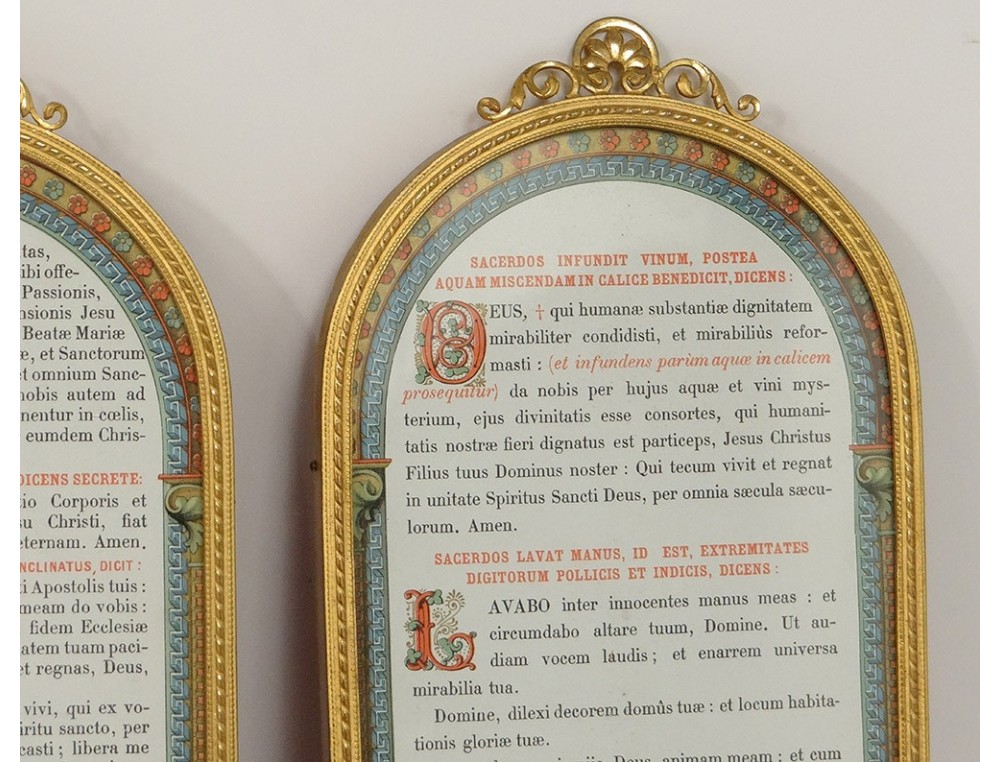 tas,
ibi offe-
Passionis,
nsionis Jesu
Beatæ Mariæ
æ, et Sanctorum
t omnium Sanc-
nobis autem ad
nentur in cœlis,
eumdem Chris-
DICENS SECRETE:
io Corporis et
su Christi, fiat
eternam. Amen.
NCLINATUS, DICIT:
i Apostolis tuis :
meam do vobis :
fidem Ecclesiæ
atem tuam paci-
et regnas, Deus,
vivi, qui ex vo-
iritu sancto, per
casti ; libera me
SACERDOS INFUNDIT VINUM, POSTEA
AQUAM MISCENDAM IN CALICE BENEDICIT, DICENS :
DEUS, † qui humanæ substantiæ dignitatem
mirabiliter condidisti, et mirabiliùs refor-
masti : (et infundens parùm aquæ in calicem
prosequitur) da nobis per hujus aquæ et vini mys-
terium, ejus divinitatis esse consortes, qui humani-
tatis nostræ fieri dignatus est particeps, Jesus Christus
Filius tuus Dominus noster : Qui tecum vivit et regnat
in unitate Spiritus Sancti Deus, per omnia sæcula sæcu-
lorum. Amen.
SACERDOS LAVAT MANUS, ID EST, EXTREMITATES
DIGITORUM POLLICIS ET INDICIS, DICENS :
LAVABO inter innocentes manus meas : et
circumdabo altare tuum, Domine. Ut au-
diam vocem laudis ; et enarrem universa
mirabilia tua.
Domine, dilexi decorem domûs tuæ : et locum habita-
tionis gloriæ tuæ.
Deus, animam meam : et cum